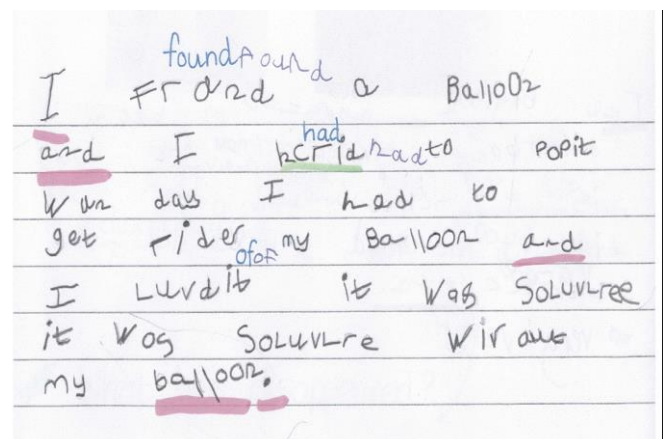 found found
I Frond a Balloon
had
and I hcrid had to popit
wan day I had to
get rider my Balloon and
of of
I Luvdit it Was SoLuvLree
it Was SoLuvLre Wir aut
my balloon.